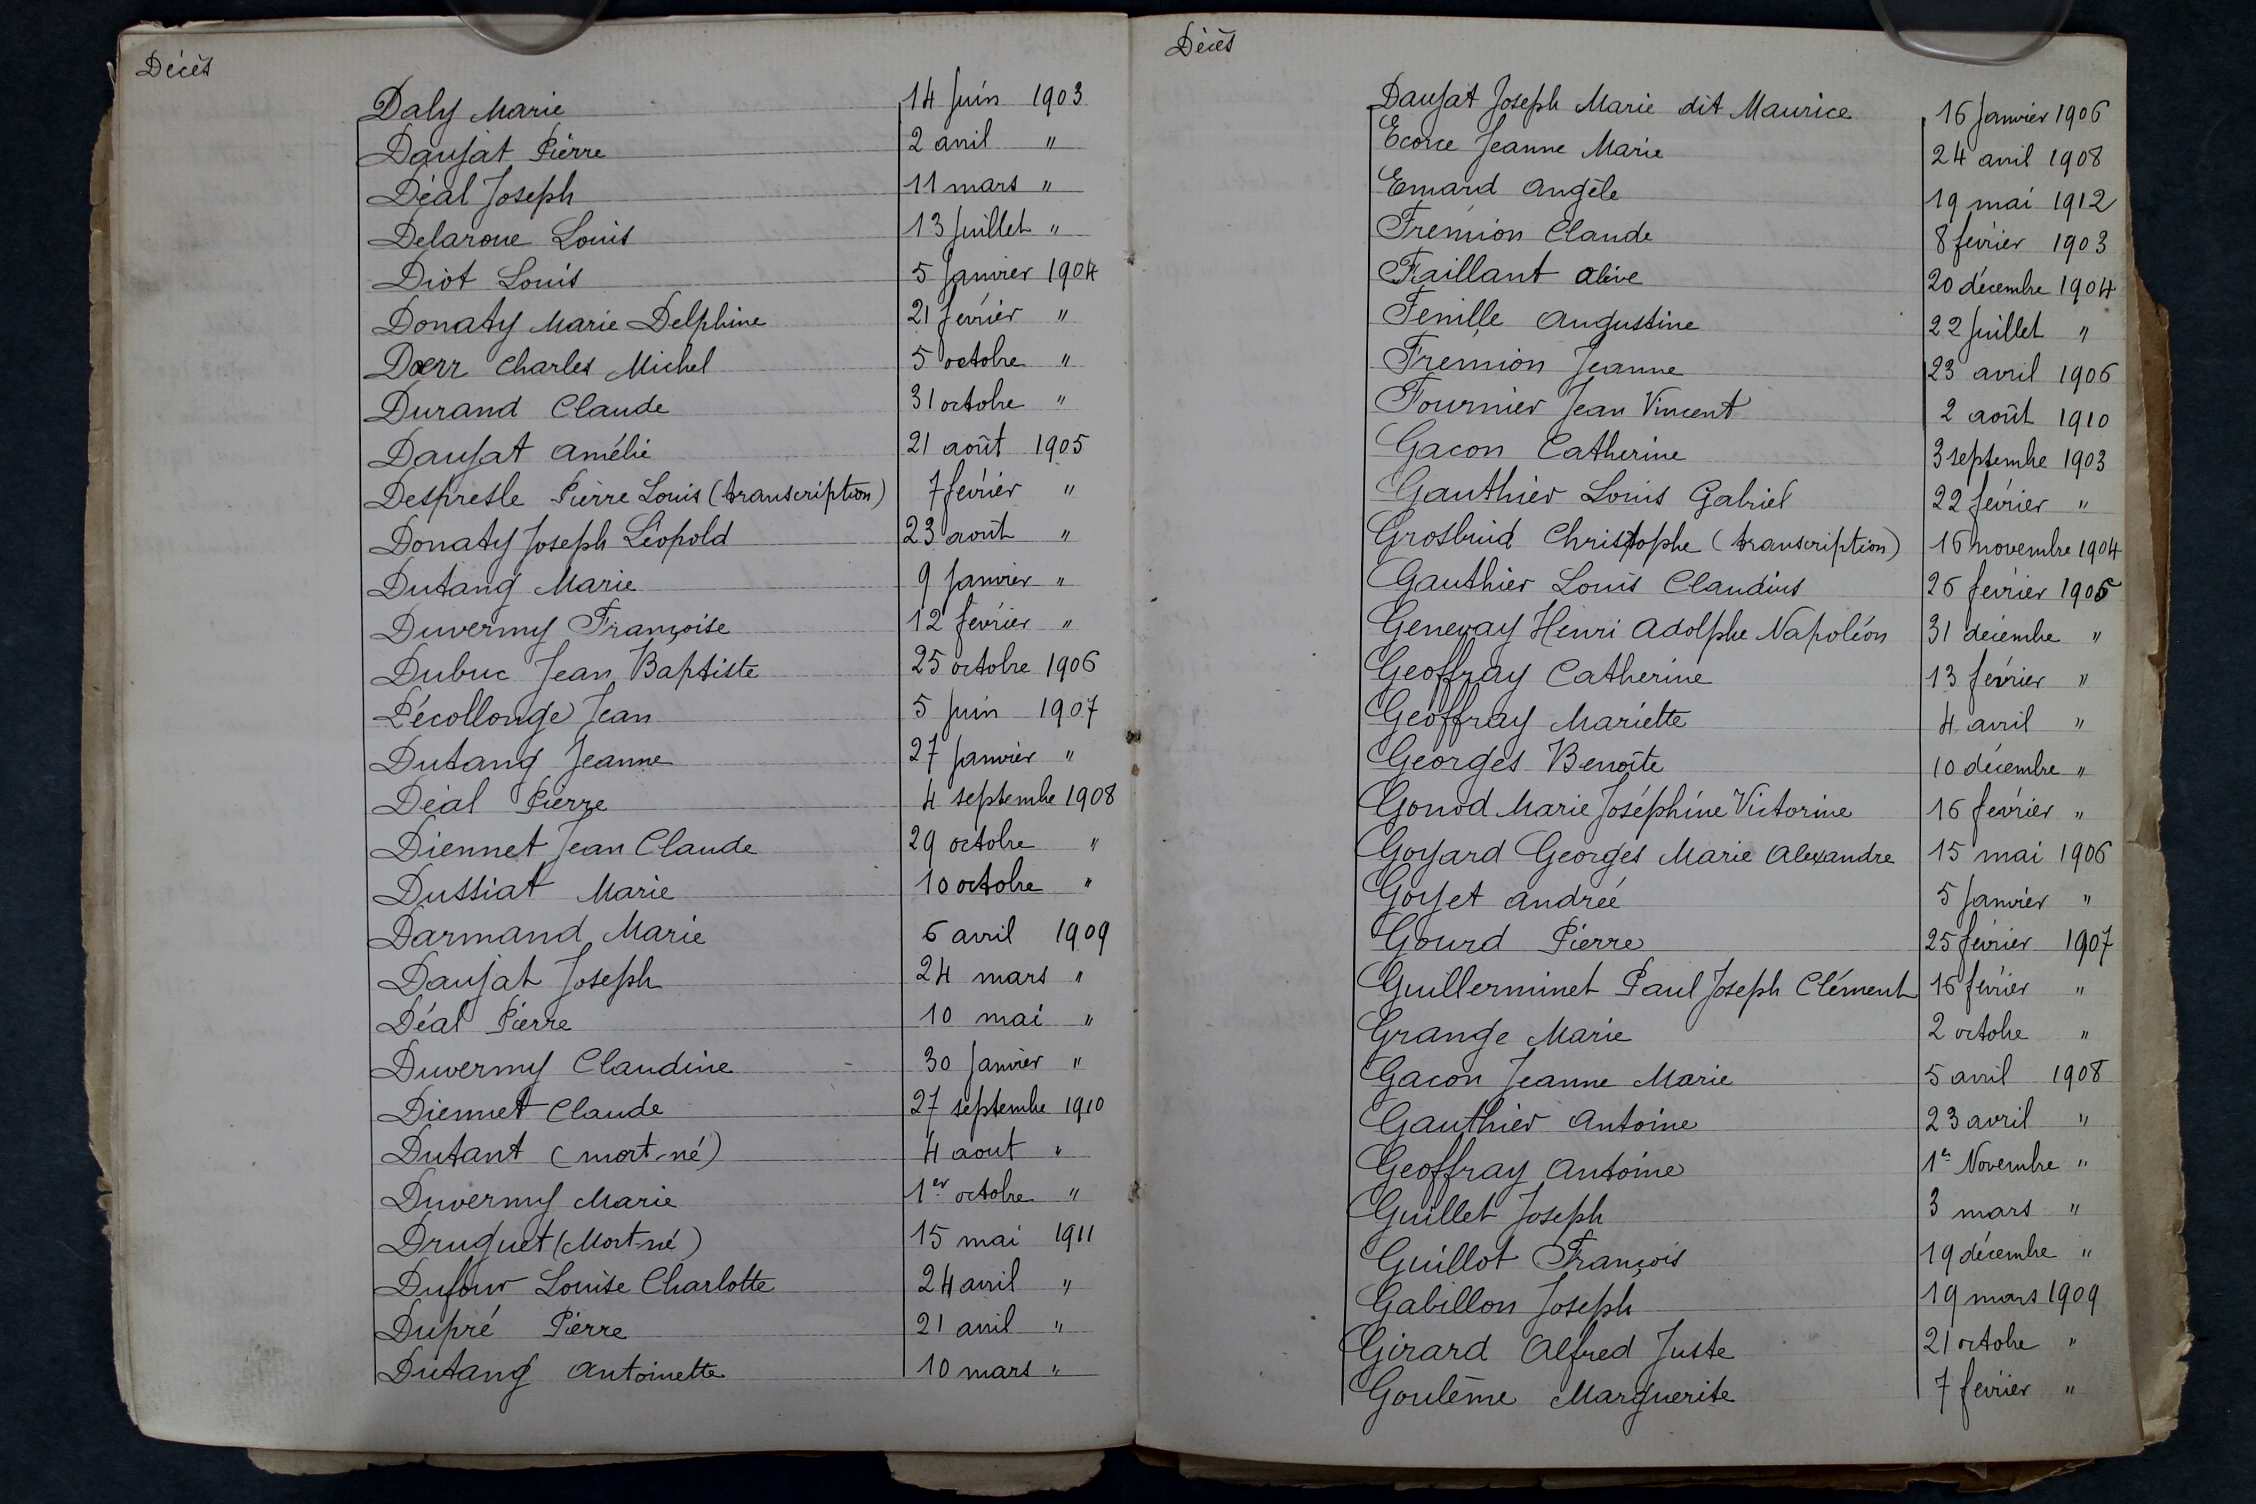 Décès
Daly Marie 14 Juin 1903
Daujat Pierre 2 avril "
Déal Joseph 11 mars "
Delaroue Louis 13 Juillet "
Diot Louis 5 Janvier 1904
Donaty Marie Delphine 21 février "
Dœrr Charles Michel 5 octobre "
Durand Claude 31 octobre "
Daujat Amélie 21 août 1905
Despresle Pierre Louis (transcription) 7 février "
Donaty Joseph Léopold 23 août "
Dutang Marie 9 Janvier "
Duvermy Françoise 12 février "
Dubuc Jean Baptiste 25 octobre 1906
Décollonge Jean 5 Juin 1907
Dutang Jeanne 27 Janvier "
Déal Pierre 4 septembre 1908
Diennet Jean Claude 29 octobre "
Dussiat Marie 10 octobre "
Darmand Marie 6 avril 1909
Daujat Joseph 24 mars "
Déal Pierre 10 mai "
Duvermy Claudine 30 Janvier "
Diennet Claude 27 septembre 1910
Dutant (mort-né) 4 aout "
Duvermy Marie 1er octobre "
Druguet (Mort-né) 15 mai 1911
Dufour Louise Charlotte 24 avril "
Dupré Pierre 21 avril "
Dutang Antoinette 10 mars "
Décès
Daujat Joseph Marie dit Maurice 16 Janvier 1906
Ecorce Jeanne Marie 24 avril 1908
Emard Angèle 19 mai 1912
Frémion Claude 8 février 1903
Faillant Alive 20 décembre 1904
Fenille Augustine 22 Juillet "
Frémion Jeanne 23 avril 1906
Fournier Jean Vincent 2 août 1910
Gacon Catherine 3 septembre 1903
Gauthier Louis Gabriel 22 février "
Grosbuid Christophe (transcription) 16 novembre 1904
Gauthier Louis Claudius 26 février 1905
Genevay Henri Adolphe Napoléon 31 décembre "
Geoffray Catherine 13 février "
Geoffray Mariette 4 avril "
Georges Benoîte 10 décembre "
Gonod Marie Joséphine Victorine 16 février "
Goyard Georges Marie Alexandre 15 mai 1906
Goyet Andrée 5 Janvier "
Gourd Pierre 25 février 1907
Guillerminet Paul Joseph Clément 16 février "
Grange Marie 2 octobre "
Gacon Jeanne Marie 5 avril 1908
Gauthier Antoine 23 avril "
Geoffray Antoine 1er Novembre "
Guillet Joseph 3 mars "
Guillot François 19 décembre "
Gabillon Joseph 19 mars 1909
Girard Alfred Juste 21 octobre "
Goulême Marguerite 7 février "